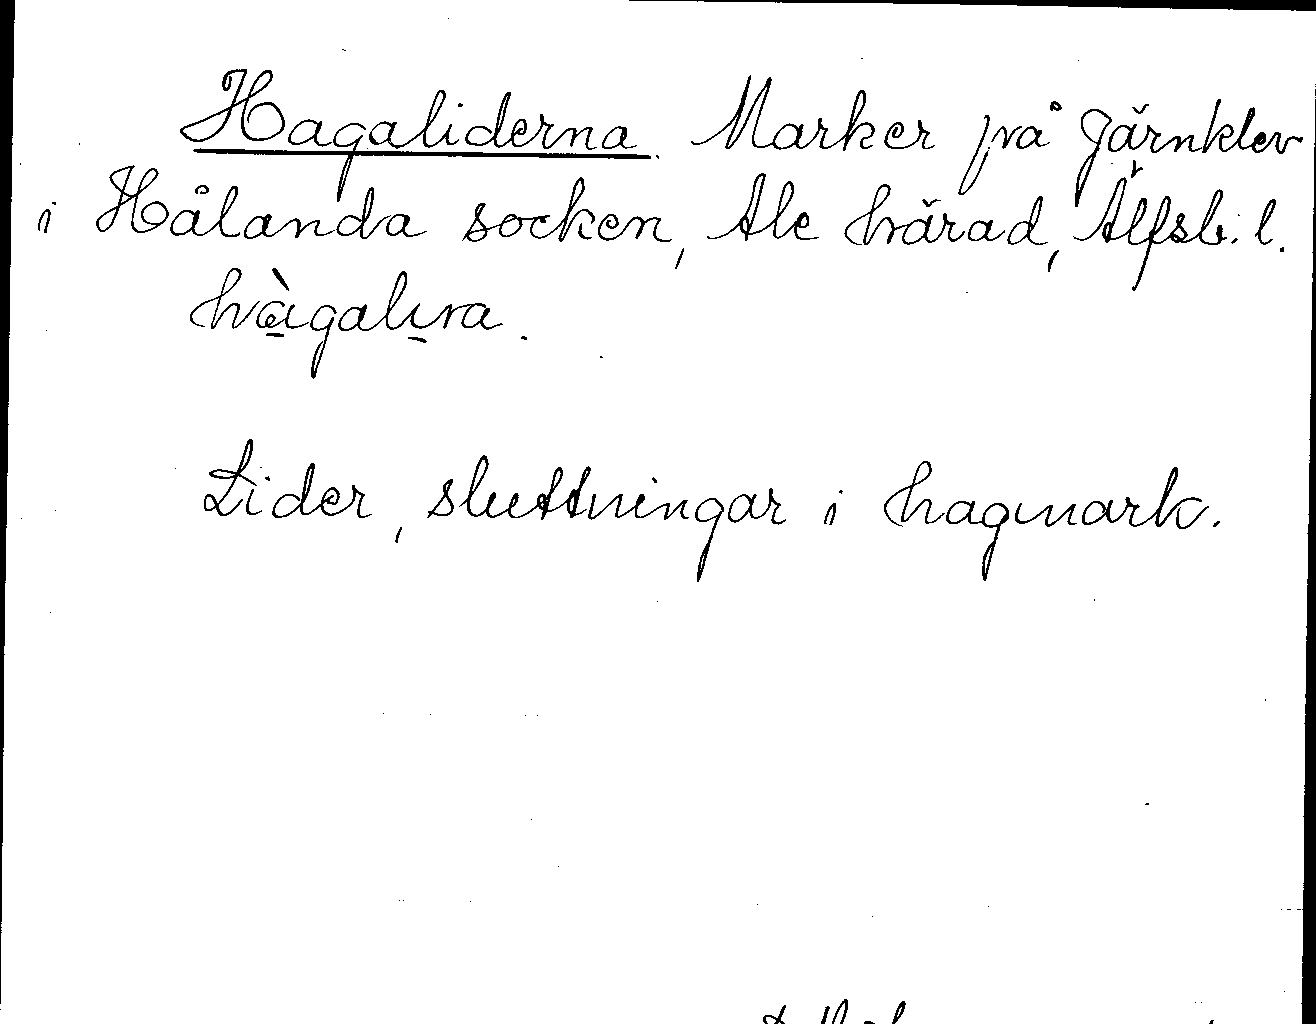 Hagaliderna. Marker på Järnklev
i Hålanda socken, Ale härad, Älfsb. l.
hàgalıra.
Lider, sluttningar i hagmark.